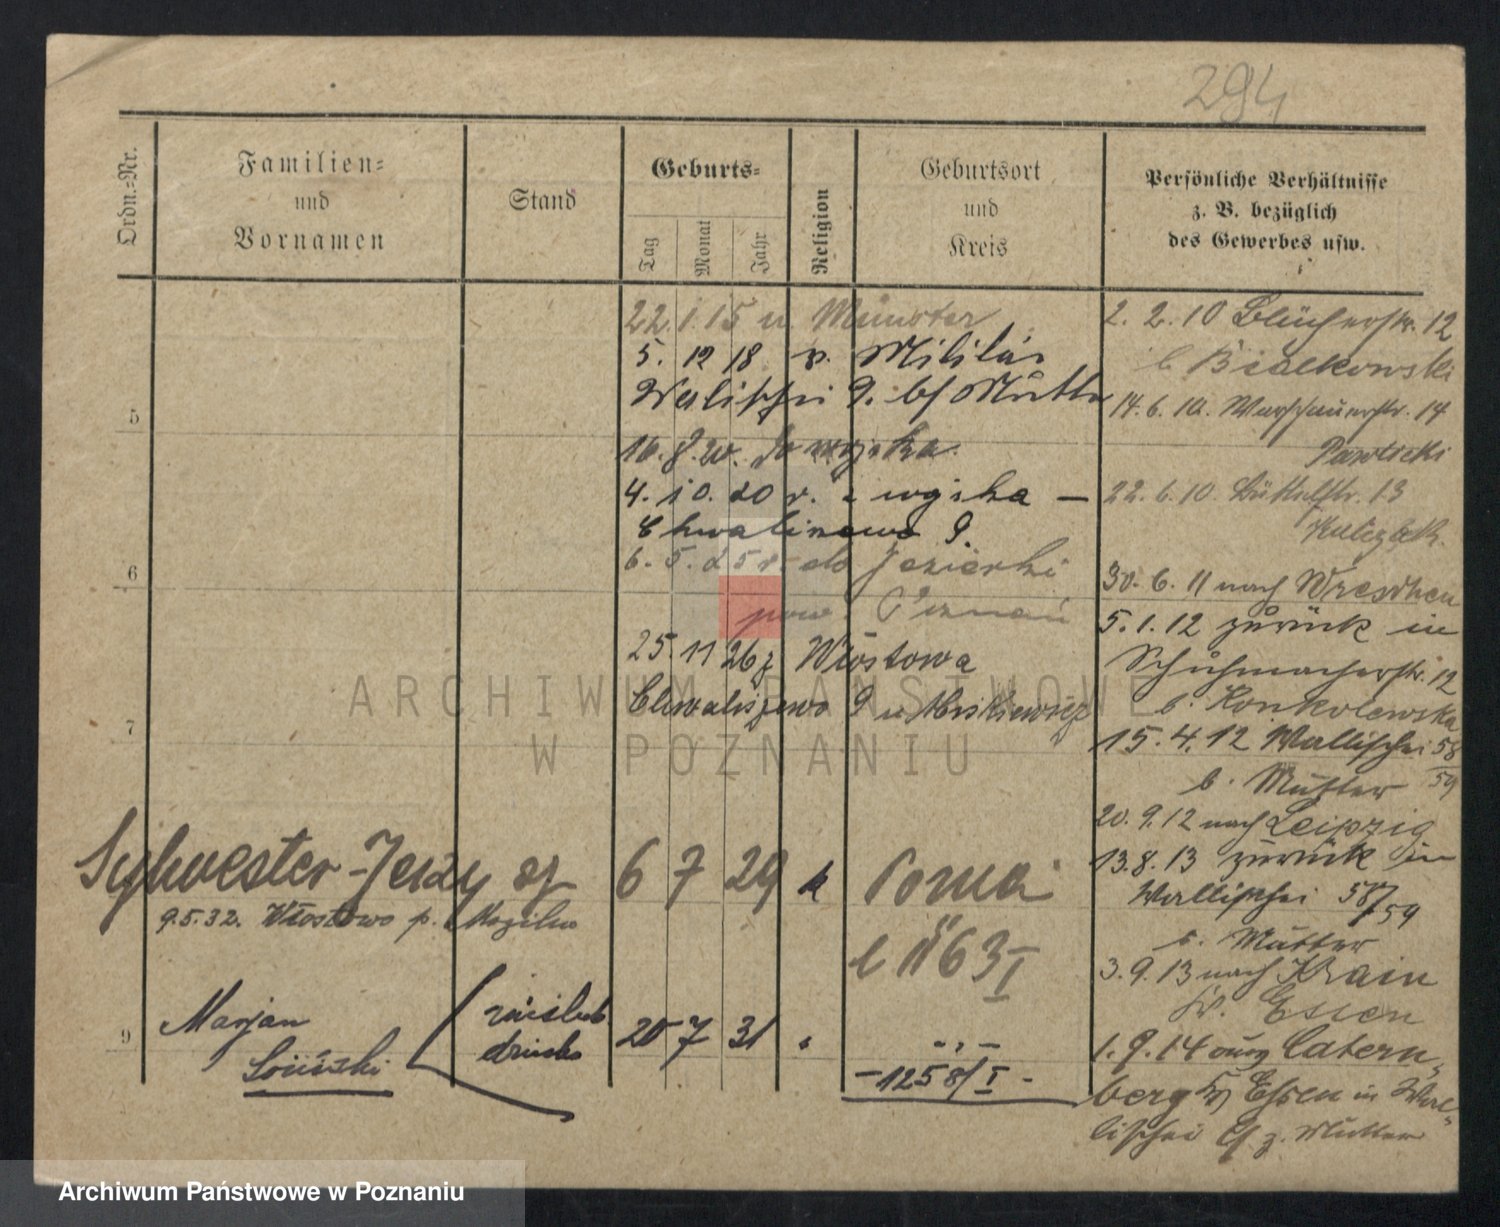 294
Ordn.-Nr.
Familien-
und
Vornamen
Stand
Geburts-
Tag
Monat
Jahr
Religion
Geburtsort
und
Kreis
Persönliche Verhältnisse
z. B. bezüglich
des Gewerbes usw.
22. 1. 15 n. Münster
5. 12 18 v. Militär
Wallischei 9. b/ Mutter
16. 8. 20. do wojska
4. 10. 20 v. wojska —
Chwaliszewo 9.
6. 5. 25 r. do Jezierki
pow Poznań
25. 11 26 z Włostowa
Chwaliszewo 9 u Miskiewicz
5
6
7
9
2. 2. 10 Blücherstr. 12
b Bialkowski
14. 6. 10. Warschauerstr. 14
Pawlicki
22. 6. 10. Büttelstr. 13
30. 6. 11 nach Wreschen
5. 1. 12 zurück in
Schuhmacherstr. 12
b. Konkolewska
15. 4. 12 Wallischei 58
59
b. Mutter
20. 9. 12 nach Leipzig
13. 8. 13 zurück in
Wallischei 58/59
b. Mutter
3. 9. 13 nach Krain
Kr. Essen
1. 9. 14 aus Catern-
berg Kr Essen in Wal-
lischei 9 z. Mutter
Sylwester-Jerzy sz 6 7 29 k Pozna
9.5.32. Włostowo p. Mogilno
b 1163 I
Marjan
20 7 31
dziecko
-1258/I-
ARCHIWUM PAŃSTWOWE
W POZNANIU
Archiwum Państwowe w Poznaniu